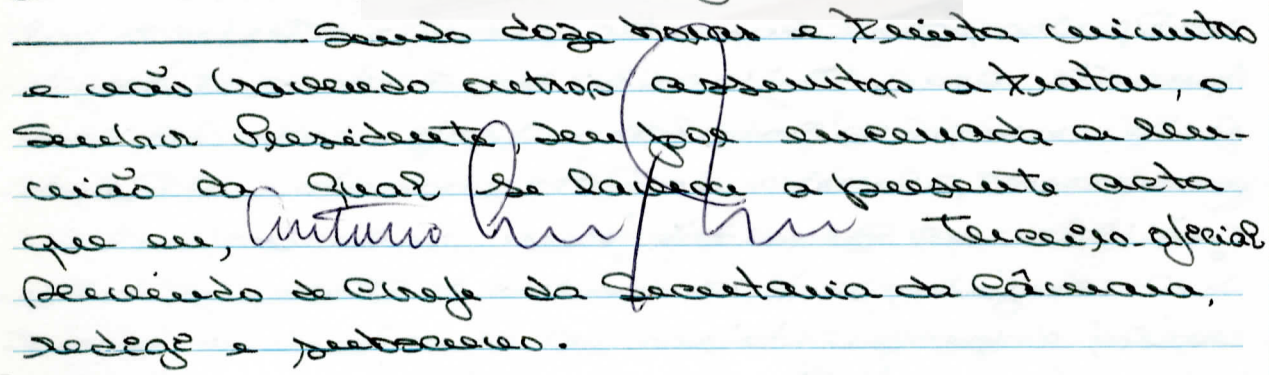 Sendo doze horas e trinta minutos
e não havendo outros assuntos a tratar, o
Senhor Presidente, deu por encerrada a reu-
nião da qual se lavrou a presente acta
que eu, António Terceiro-oficial
servindo de Chefe da Secretaria da Câmara,
redigi e subscrevo.